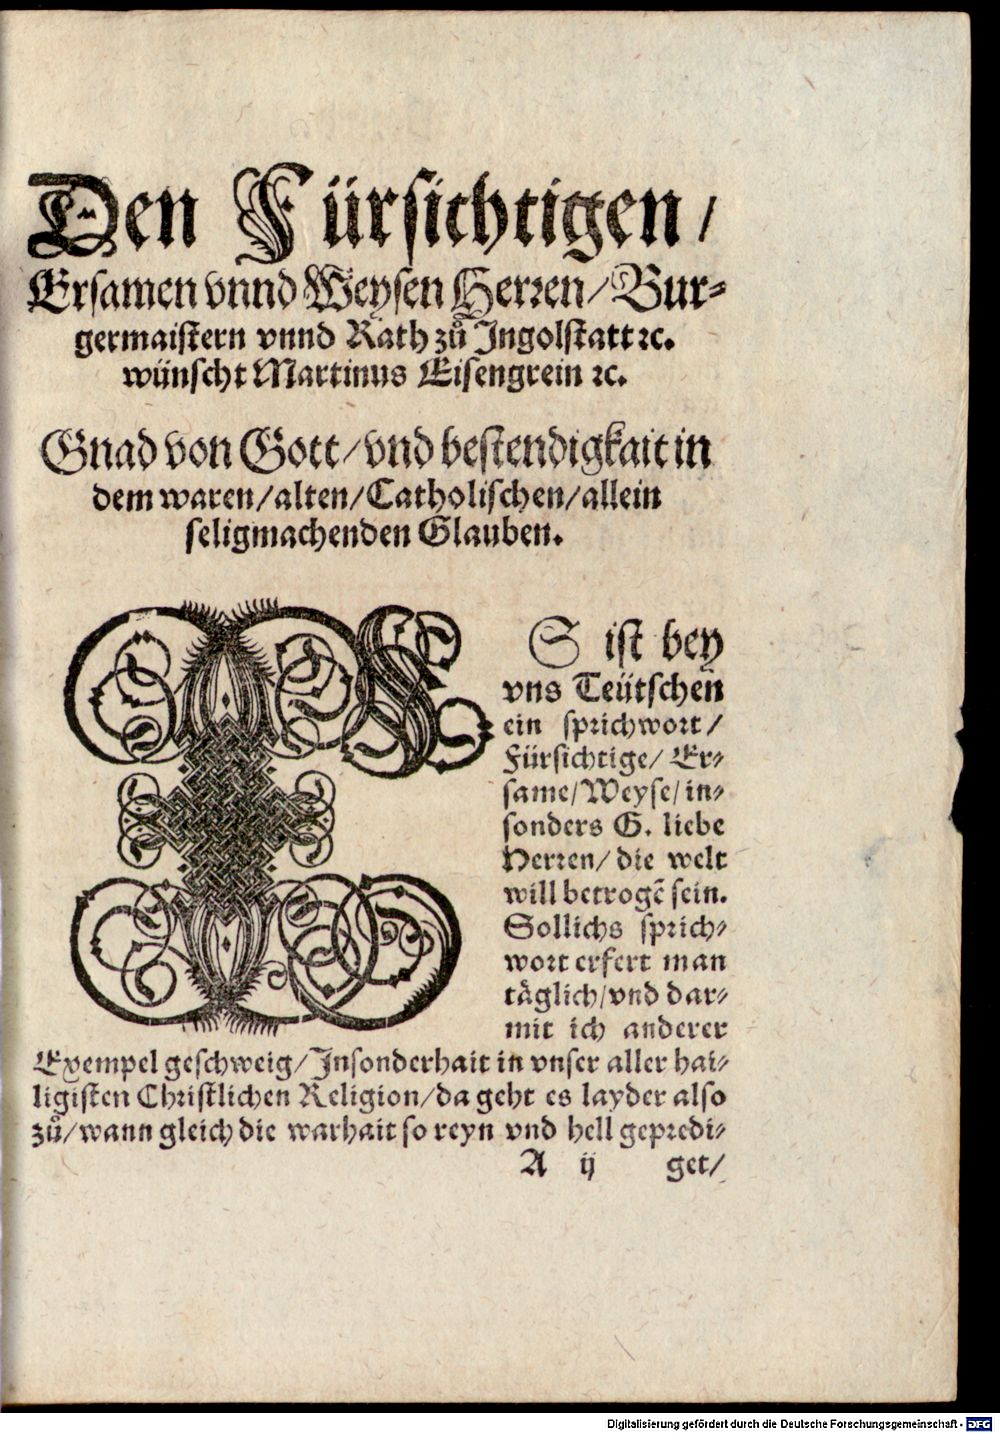 Den Fürsichtigen/
Ersamen vnnd Weysen Herren/Bur-
germaistern vnnd Rath zů Ingolstatt ꝛc.
wünscht Martinus Eisengrein ꝛc.
Gnad von Gott/vnd bestendigkait in
dem waren/alten/Catholischen/allein
seligmachenden Glauben.
ES ist bey
vns Teütschen
ein sprichwort/
Fürsichtige/ Er-
same/Weyse/in-
sonders G. liebe
Herren/die welt
will betrogẽ sein.
Sollichs sprich-
wort erfert man
täglich/vnd dar-
mit ich anderer
Exempel geschweig/Insonderhait in vnser aller hai-
ligisten Christlichen Religion/da geht es layder also
zů/wann gleich die warhait so reyn vnd hell gepredi-
A ij get/
Digitalisierung gefördert durch die Deutsche Forschungsgemeinschaft - DFG